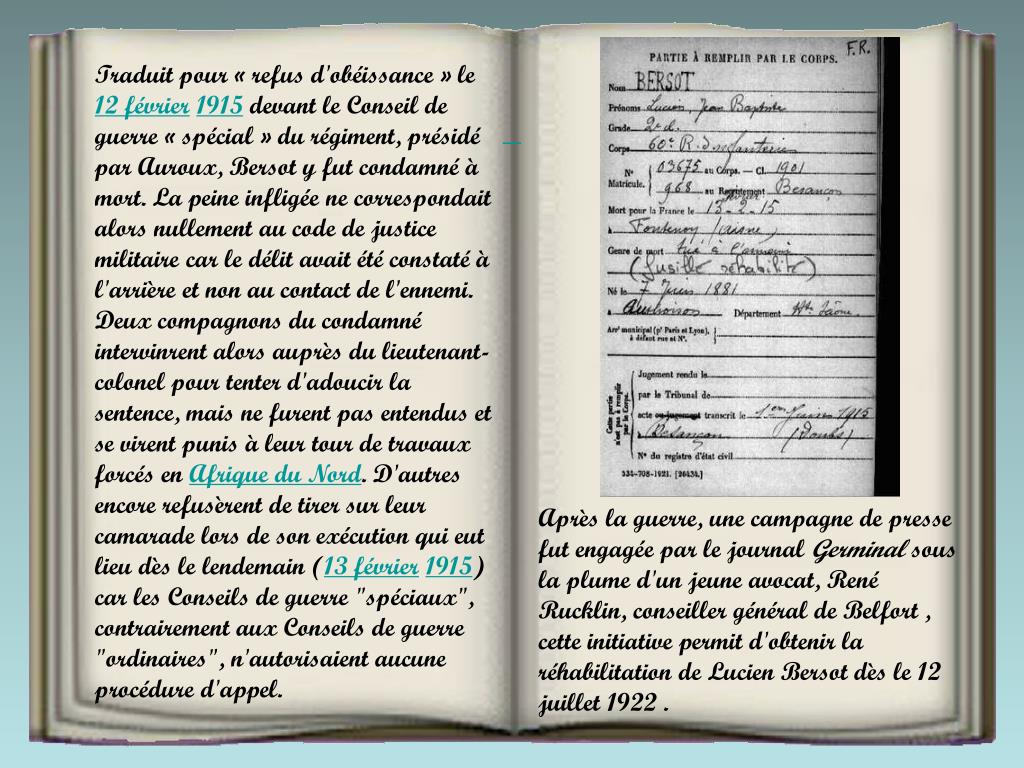 Traduit pour « refus d'obéissance » le
12 février 1915 devant le Conseil de
guerre « spécial » du régiment, présidé
par Auroux, Bersot y fut condamné à
mort. La peine infligée ne correspondait
alors nullement au code de justice
militaire car le délit avait été constaté à
l'arrière et non au contact de l'ennemi.
Deux compagnons du condamné
intervinrent alors auprès du lieutenant-
colonel pour tenter d'adoucir la
sentence, mais ne furent pas entendus et
se virent punis à leur tour de travaux
forcés en Afrique du Nord. D'autres
encore refusèrent de tirer sur leur
camarade lors de son exécution qui eut
lieu dès le lendemain (13 février 1915)
car les Conseils de guerre "spéciaux",
contrairement aux Conseils de guerre
"ordinaires", n'autorisaient aucune
procédure d'appel.
F.R.
PARTIE À REMPLIR PAR LE CORPS.
Nom BERSOT
Prénoms Lucien, Jean Baptiste
Grade 2e cl.
Corps 60e R. d'infanterie
N° Matricule. { 03675 au Corps. — Cl. 1901
968 au Recrutement Besançon
Mort pour la France le 13-2-15
février
à Fontenoy (aisne)
Genre de mort tué à l'ennemi
(fusillé réhabilité)
Né le 7 Juin 1881
à Authoison Département Hte Saône
Arrt municipal (pr Paris et Lyon), à défaut rue et N°.
Cette partie n'est pas à remplir par le Corps.
Jugement rendu le
par le Tribunal de
acte ou jugement transcrit le 1915
à Besançon (Doubs)
N° du registre d'état civil
534-708-1921. [26434.]
Après la guerre, une campagne de presse
fut engagée par le journal Germinal sous
la plume d'un jeune avocat, René
Rucklin, conseiller général de Belfort ,
cette initiative permit d'obtenir la
réhabilitation de Lucien Bersot dès le 12
juillet 1922 .